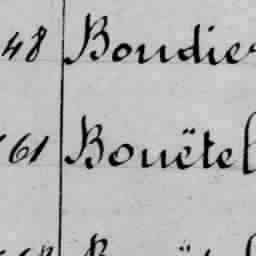 48 Boudier
61 Bouëtel